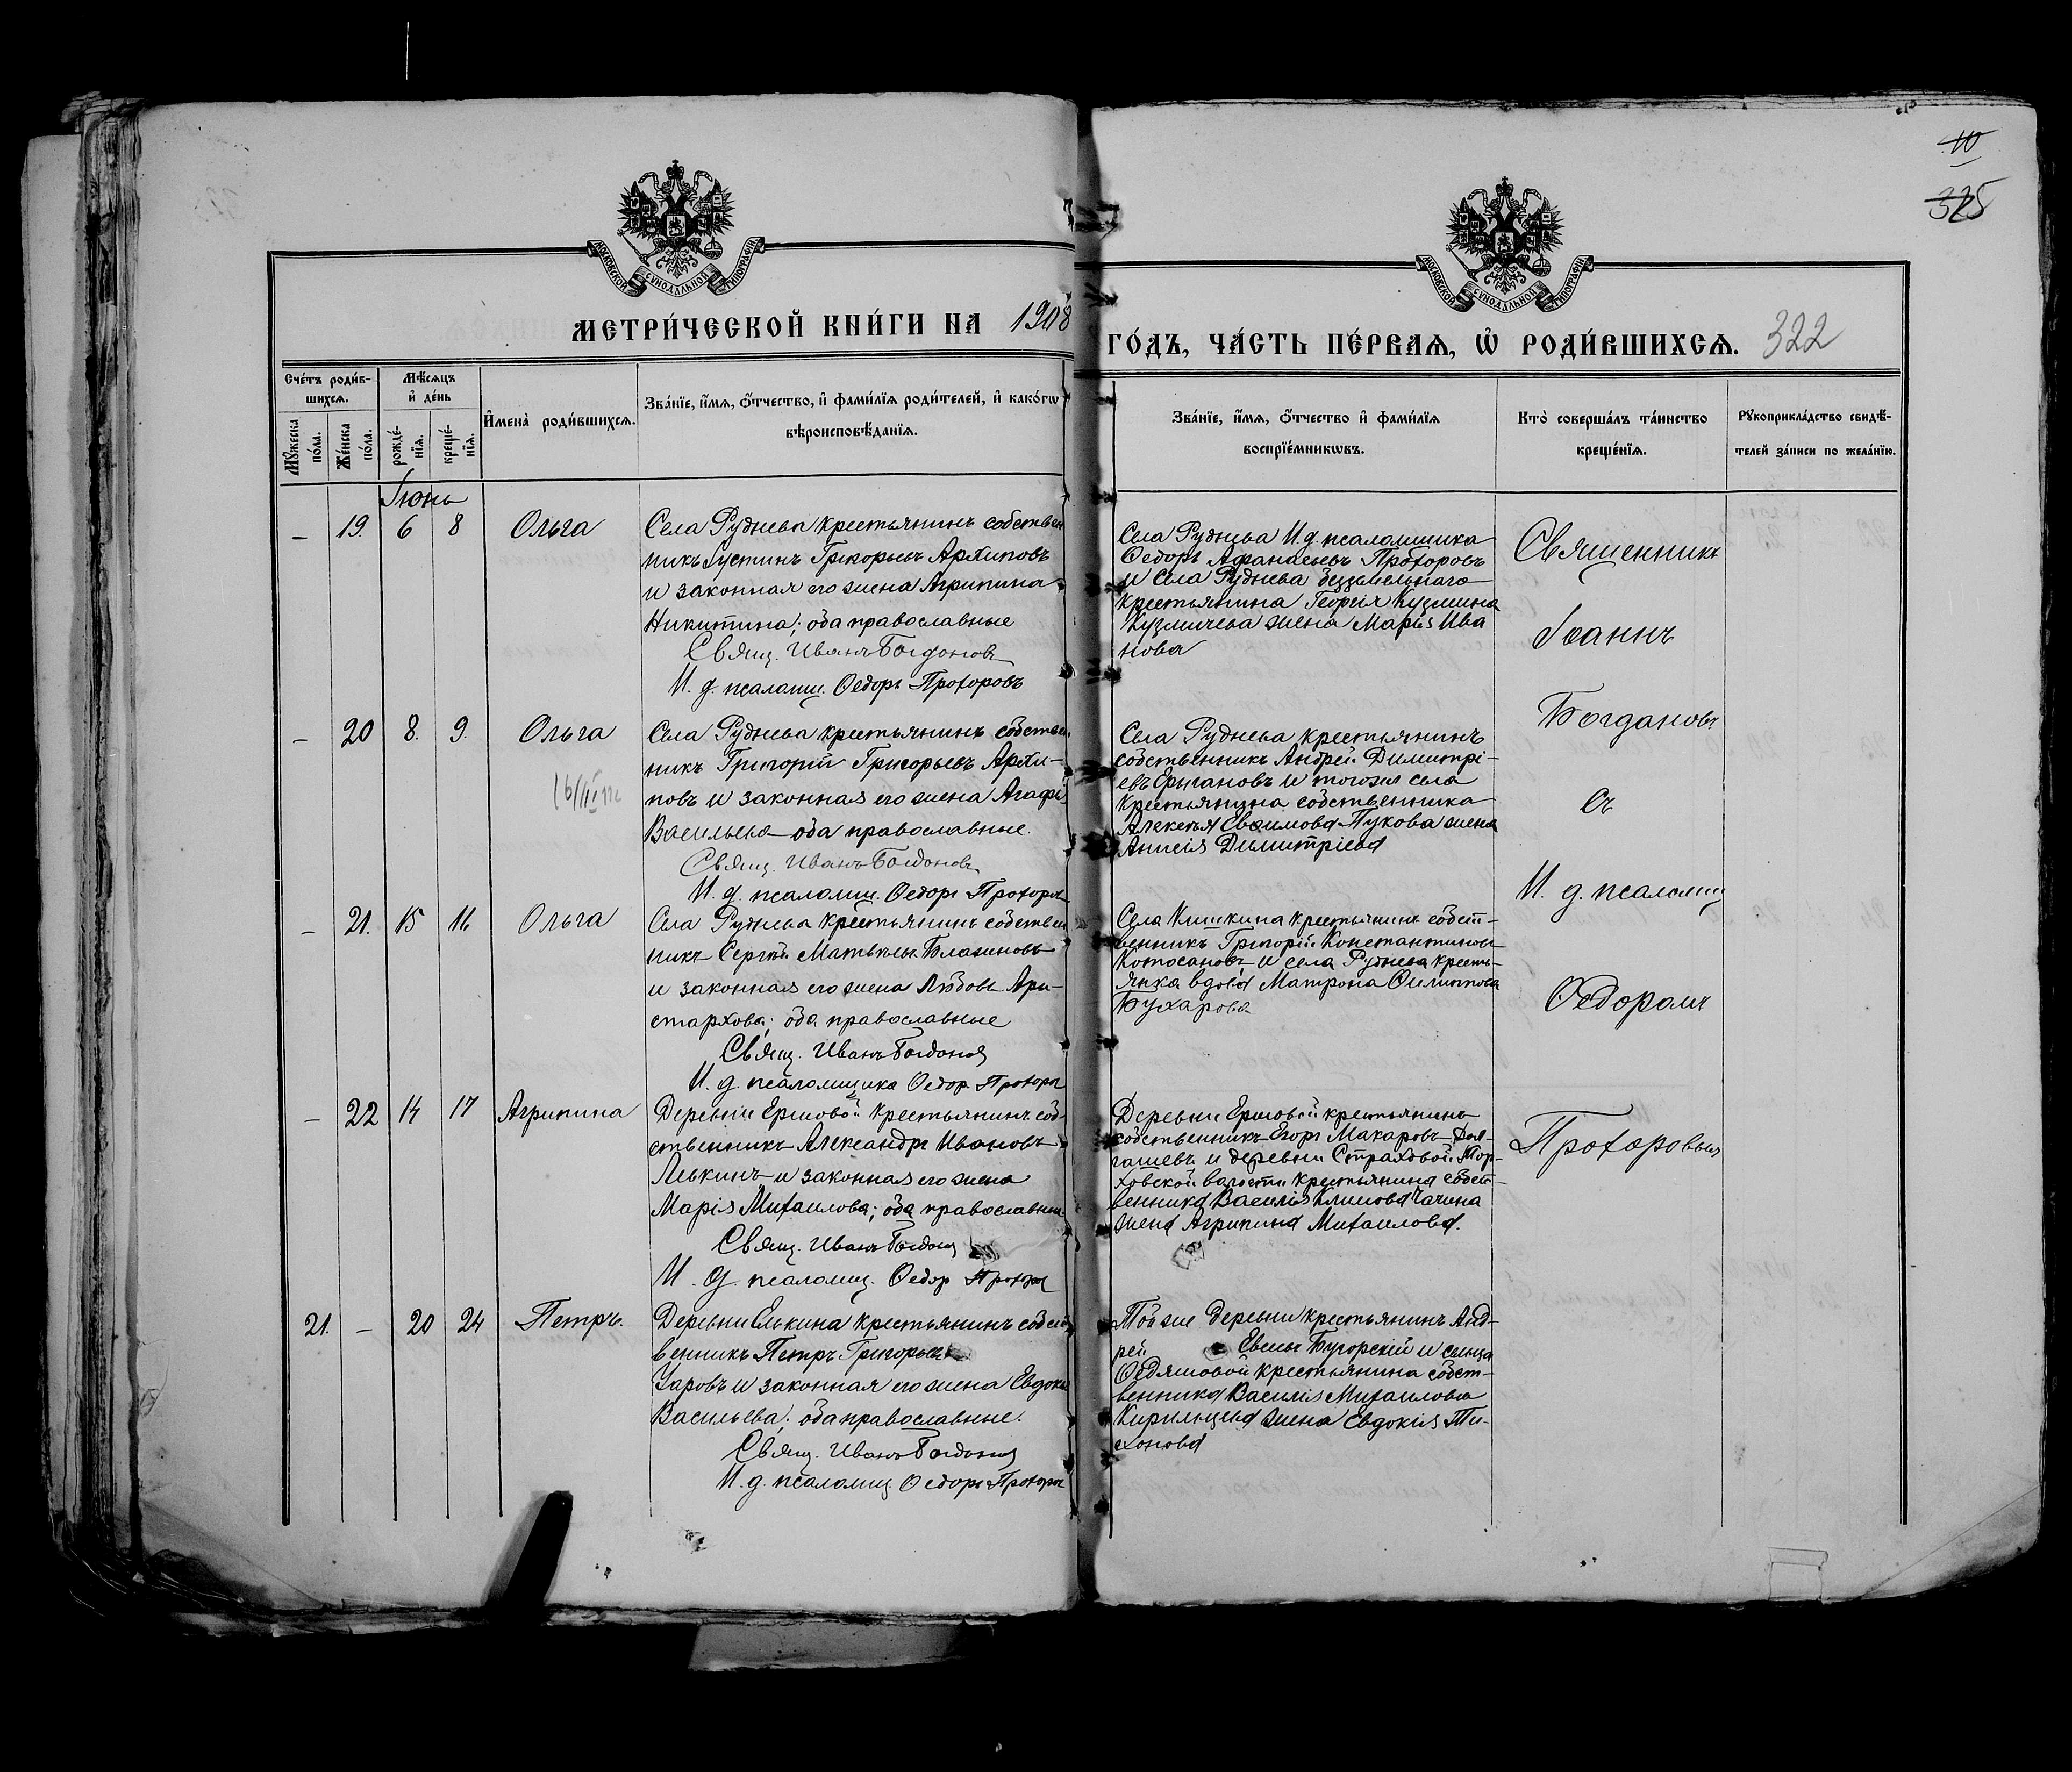 10
325
МОСКОВСКОЙ СѴНОДАЛЬНОЙ ТИПОГРАФІИ
МОСКОВСКОЙ СѴНОДАЛЬНОЙ ТИПОГРАФІИ
МЕТРИ́ЧЕСКОЙ КНИ́ГИ НА 1908
ГО́ДЪ, ЧА́СТЬ ПЕ́РВАѦ, Ѡ҆ РОДИ́ВШИХСѦ. 322
Сче́тъ роди́в-
шихсѧ.
Мꙋ́жеска по́ла.
Же́нска по́ла.
Мѣ́сѧцъ
и҆ де́нь
рожде́-нїѧ.
креще́-нїѧ.
И҆мена̀ роди́вшихсѧ.
Зва́нїе, и҆́мѧ, ѻ҆́тчество, и҆ фами́лїѧ роди́телей, и҆ како́гѡ
вѣроисповѣ́данїѧ.
Зва́нїе, и҆́мѧ, ѻ҆́тчество и҆ фами́лїѧ
воспрїе́мникѡвъ.
Кто̀ соверша́лъ та́инство
креще́нїѧ.
Рꙋкоприкла́дство свидѣ́-
телей за́писи по жела́нїю.
Іюнь
– 19. 6 8 Ольга
Села Руднева крестьянинъ собствен
никъ Іустинъ Григорьевъ Архиповъ
и законная его жена Агрипина
Никитина; оба православные
Свящ. Иванъ Богдановъ
И. д. псаломщ. Ѳедоръ Прохоровъ
Села Руднева И. д. псаломщика
Ѳедоръ Афанасьевъ Прохоровъ
и села Руднева безземельнаго
крестьянина Георгія Кузмина
Кузмичева жена Марія Ива
нова
Священникъ
Іоаннъ
Богдановъ
съ
И. д. псаломщ
Ѳедоромъ
Прохоровымъ
– 20 8. 9. Ольга
Села Руднева крестьянинъ собствен
никъ Григорій Григорьевъ Архи-
повъ и законная его жена Агафія
Васильева оба православные.
Свящ. Иванъ Богдановъ
И. д. псаломщ. Ѳедоръ Прохоровъ
Села Руднева крестьянинъ
собственникъ Андрей Димитрі-
евъ и тогоже села
крестьянина собственника
Алексѣя Евфимова Пукова жена
Анисія Димитріева
– 21. 15 16 Ольга
Села Руднева крестьянинъ собствен
никъ Сергѣй Матвѣевъ
и законная его жена Любовь Ари-
стархова; оба православные
Свящ. Иванъ Богдановъ
И. д. псаломщика Ѳедоръ Прохоровъ
Села Кишкина крестьянинъ собст-
венникъ Григорій Константиновъ
и села Руднева кресть-
янка вдова Матрона Филиппова
Бухарова
– 22 14 17 Агрипина
Деревни Ершовой крестьянинъ соб-
ственникъ Александръ Ивановъ
и законная его жена
Марія Михаилова; оба православные
Свящ. Иванъ Богдановъ
И. д. псаломщ. Ѳедоръ Прохоровъ
Деревни Ершовой крестьянинъ
собственникъ Егоръ Макаровъ
и деревни Страховой Тор-
ховской волости крестьянина собст-
венника Василія Климова
жена Агрипина Михаилова.
21. – 20 24 Петръ.
Деревни Елькина крестьянинъ собст
венникъ Петръ Григорьевъ
Уаровъ и законная его жена Евдокія
Васильева; оба православные.
Свящ. Иванъ Богдановъ
И. д. псаломщ. Ѳедоръ Прохоровъ
Той же деревни крестьянинъ Анд-
рей Бугорскій и сельца
Ѳедяшовой крестьянина собст-
венника Василія Михаилова
Кирильцева жена Евдокія Ти-
хонова